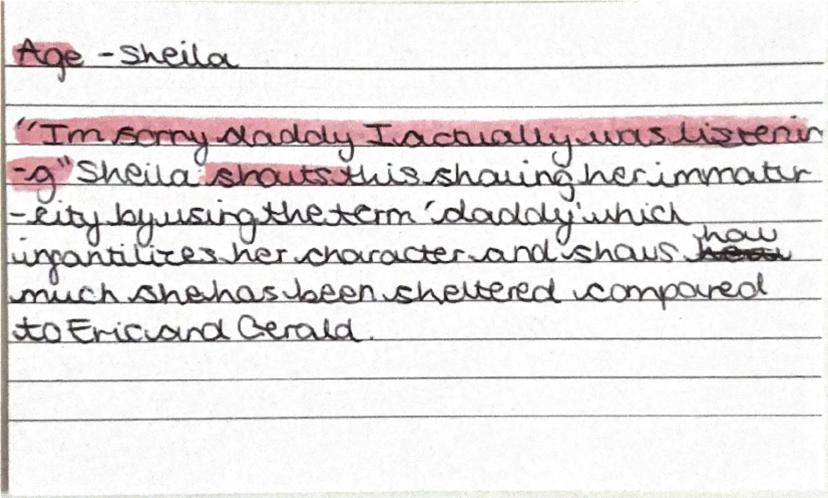 Age - Sheila
"Im sorry daddy I actually was listenin
-g" Sheila shouts this showing her immatur
-eity by using the term 'daddy' which
infantilizes her character and shows how
much she has been sheltered compared
to Eric and Gerald.